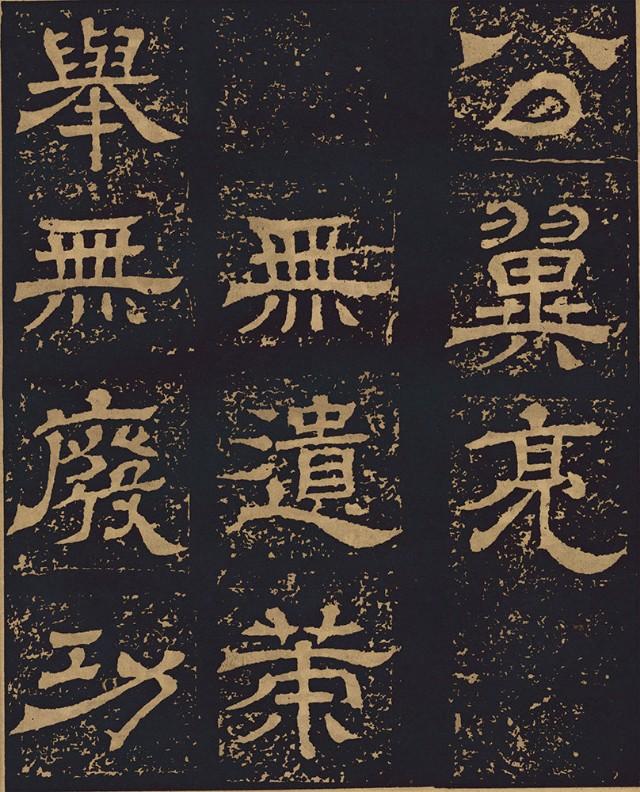 公翼亮
無遺策
舉無廢功